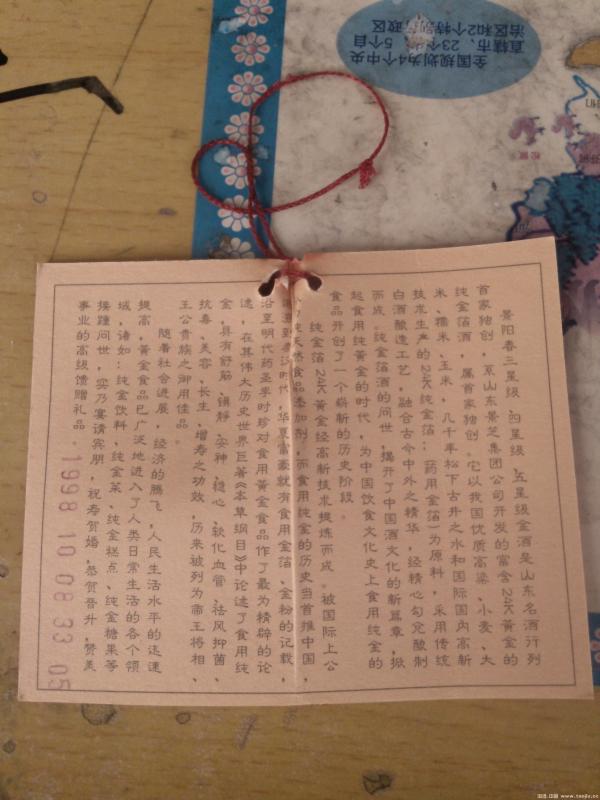 景阳春三星级、四星级、五星级金酒是山东名酒行列
首家独创，系山东景芝集团公司开发的富含24K黄金的
纯金箔酒，属首家独创。它以我国优质高粱、小麦、大
米、糯米、玉米，几千年松下古井之水和国际国内高新
技术生产的24K纯金箔：（药用金箔）为原料，采用传统
白酒酿造工艺，融合古今中外之精华，经精心勾兑酿制
而成。纯金箔酒的问世，揭开了中国酒文化的新篇章，掀
起食用纯黄金的时代，为中国饮食文化史上食用纯金的
食品开创了一个崭新的历史阶段。
纯金箔24K黄金经高新技术提炼而成。被国际上公
纯天然食品添加剂，而食用纯金的历史当首推中国，
时代，华夏富豪就有食用金箔、金粉的记载，
沿至明代药圣李时珍对食用黄金食品作了最为精辟的论
述，在其伟大历史世界巨著《本草纲目》中论述了食用纯
金，具有舒筋、镇静、安神、稳心、软化血管、祛风抑菌、
抗毒、美容、长生、增寿之功效，历来被列为帝王将相、
王公贵族之御用佳品。
随着社会进展，经济的腾飞，人民生活水平的迅速
提高，黄金食品已广泛地进入了人类日常生活的各个领
域，诸如：纯金饮料、纯金菜、纯金糕点、纯金糖果等
接踵问世，实乃宴请宾朋，祝寿贺婚，恭贺晋升，赞美
事业的高级馈赠礼品。
1998 10 08 33 05
全国规划为4个中央
直辖市、23个省、5个自
治区和2个特别行政区